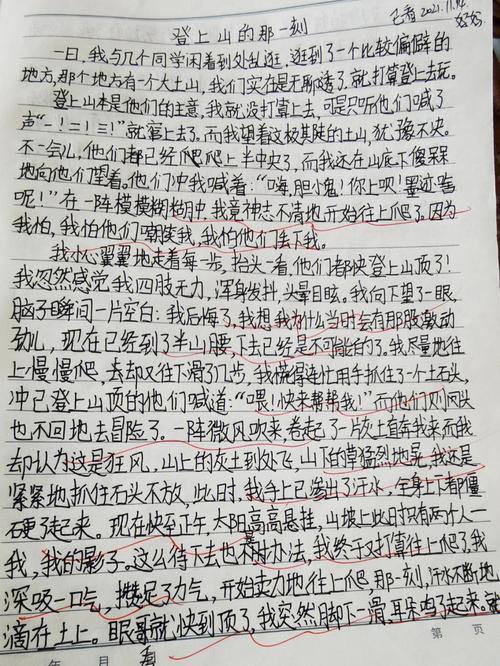 已看 2021.11.14
登上山的那一刻
一日,我与几个同学闲着到处乱逛,逛到了一个比较偏僻的
地方,那个地方有一个大土山,我们实在是无聊透了,就打算登上去玩。
登上山本是他们的主意,我就没打算上去,可是只听他们喊了
声“一!二!三!”就窜上去了。而我望着这极其陡的土山,犹豫不决。
不一会儿,他们都已经爬爬上半中央了,而我还在山底下傻呆呆
地向他们望着。他们冲我喊着:“嗨,胆小鬼!你上呗!墨迹啥
呢!”在一阵模模糊糊中,我竟神志不清地开始往上爬了。因为
我怕,我怕他们嘲笑我,我怕他们丢下我。
我小心翼翼地走着每一步,抬头一看,他们都快登上山顶了!
我忽然感觉我四肢无力,浑身发抖,头晕目眩。我向下望了一眼,
脑子瞬间一片空白:我后悔了,我想我为什么当时会有那股激动
劲儿,现在已经到了半山腰,下去已经是不可能的了。我尽量地往
上慢慢爬,去却又往下滑了几步,我慌得连忙用手抓住了一个土石头,
冲已登上山顶的他们喊道:“喂!快来帮帮我!”而他们则头
也不回地去冒险了。一阵微风吹来,卷起了一片灰土直奔我来而我
却认为这是狂风,山上的灰土到处飞,山下的草猛烈地晃,我还是
紧紧地抓住石头不放,此时,我手上已渗出了汗水,全身上下都僵
硬了起来。现在快至正午,太阳高高悬挂,山坡上此时只有两个人一
我,我的影子。这么待下去也不是办法,我终于打算往上爬了。我
深吸一口气,攒足了力气,开始卖力地往上爬,那一刻,汗水不断地
滴在土上。眼看就快到顶了,我突然脚下一滑,耳朵鸣了起来。就
第 页
年 月